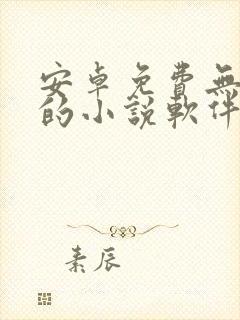 安卓免費無
的小說軟件
素辰